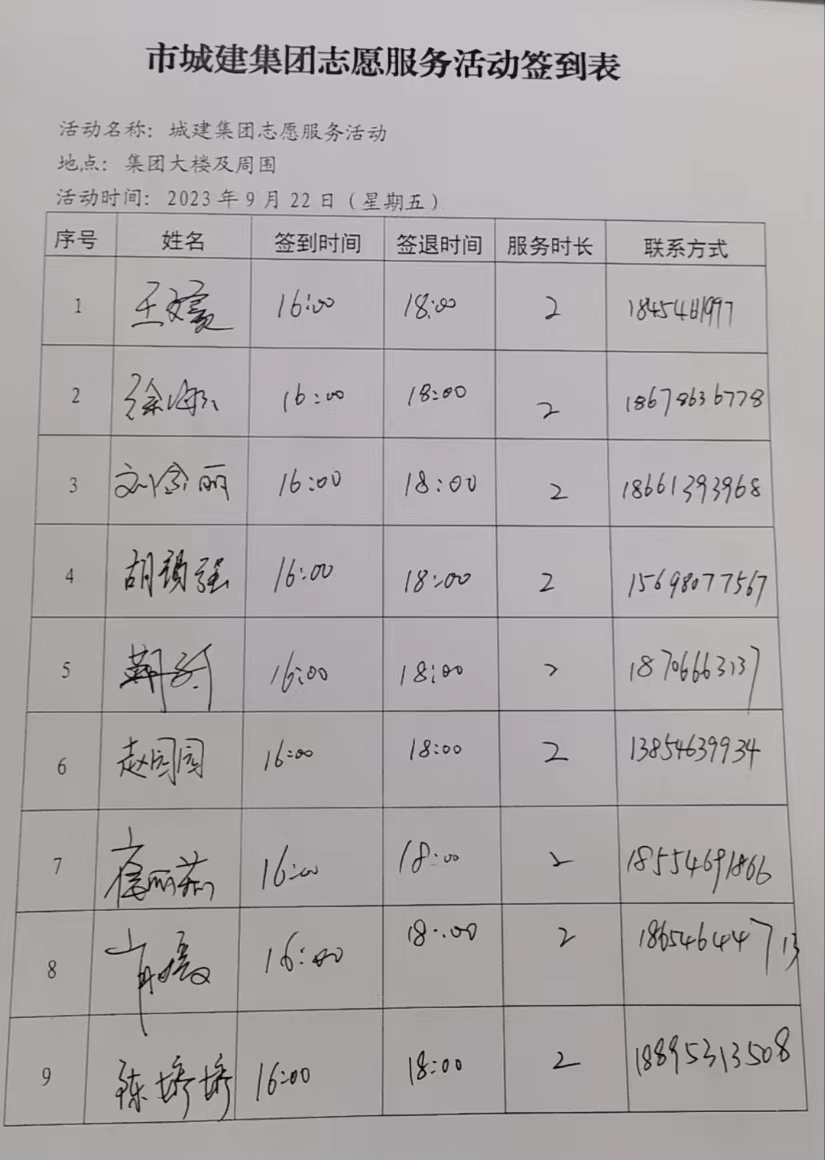 市城建集团志愿服务活动签到表
活动名称：城建集团志愿服务活动
地点：集团大楼及周围
活动时间：2023年9月22日（星期五）
序号 姓名 签到时间 签退时间 服务时长 联系方式
1 16:00 18:00 2
2 徐 16:00 18:00 2 18678636778
3 刘 丽 16:00 18:00 2 18661393968
4 胡 强 16:00 18:00 2 15698077567
5 16:00 18:00 2 18706663137
6 赵园园 16:00 18:00 2 13854639934
7 16:00 18:00 2 18554691866
8 16:00 18:00 2 18654644713
9 陈婷婷 16:00 18:00 2 18895313508